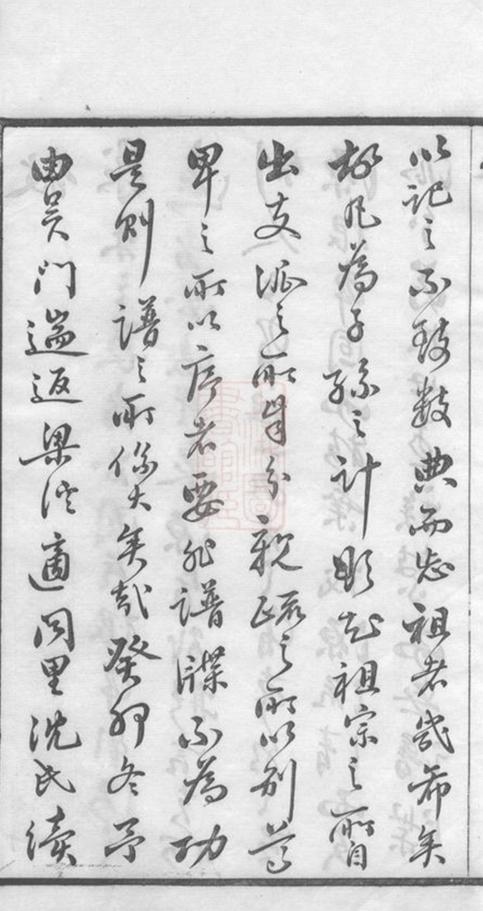 以記之不致數典而忘祖者幾希矣
故凡為子孫之計敢忘祖宗之所自
出支派之所自分親疏之所以別尊
卑之所以序者要非譜牒不為功
是則譜之所係大矣哉癸卯冬予
由吳門遄返梁溪適同里沈氏續